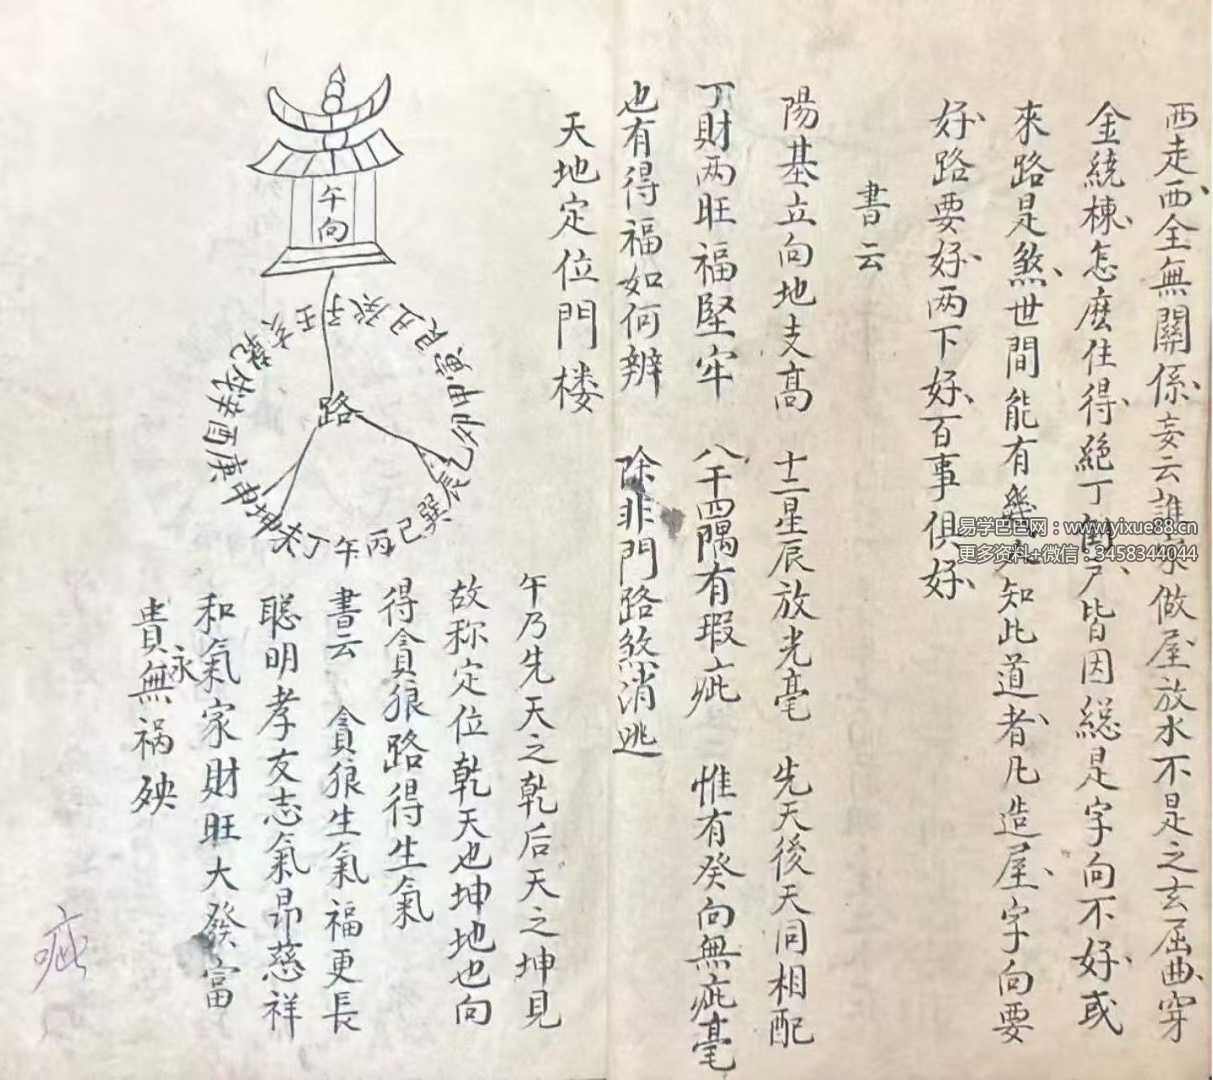 西走西全無關係妄云誰家做屋放水不是之玄屈曲穿
金繞棟怎麽住得絕丁倒户皆因総是字向不好或
來路是煞世間能有幾人知此道者凡造屋字向要
好路要好两下好百事俱好
書云
陽基立向地支高 十二星辰放光毫 先天後天同相配
丁財两旺福堅牢 八干四隅有瑕疵 惟有癸向無疵毫
也有得福如何辨 除非門路煞消逃
天地定位門楼
午向
路
壬子癸丑艮寅甲卯乙辰巽巳丙午丁未坤申庚酉辛戌乾亥
午乃先天之乾后天之坤見
故称定位乾天也坤地也向
得貪狼路得生氣
書云 貪狼生氣福更長
聪明孝友志氣昂慈祥
和氣家財旺大發富
貴永無禍殃
疵
易学巴巴网：www.yixue88.cn
更多资料+微信：3458344044